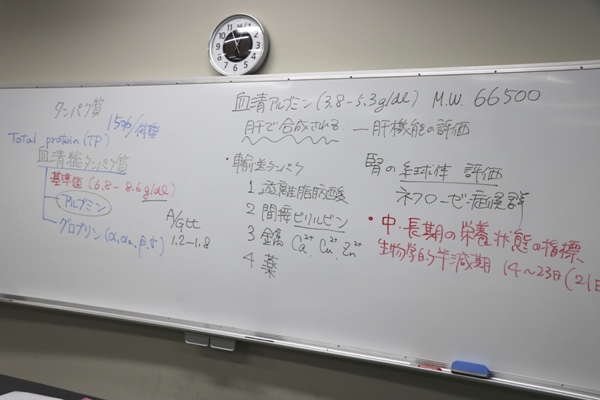 タンパク質
15%/体重
Total protein (TP)
血清総タンパク質
基準値 (6.8-8.6g/dl)
アルブミン
グロブリン (α1, α2, β, γ)
A/G比
1.2-1.8
血清アルブミン (3.8-5.3g/dl) M.W. 66500
肝で合成される ー肝機能の評価
・輸送タンパク
1 遊離脂肪酸
2 間接ビリルビン
3 金属 Ca2+ Cu2+ Zn2+
4 薬
腎の糸球体 評価
ネフローゼ症候群
・中・長期の栄養状態の指標
生物学的半減期 14〜23日(21日